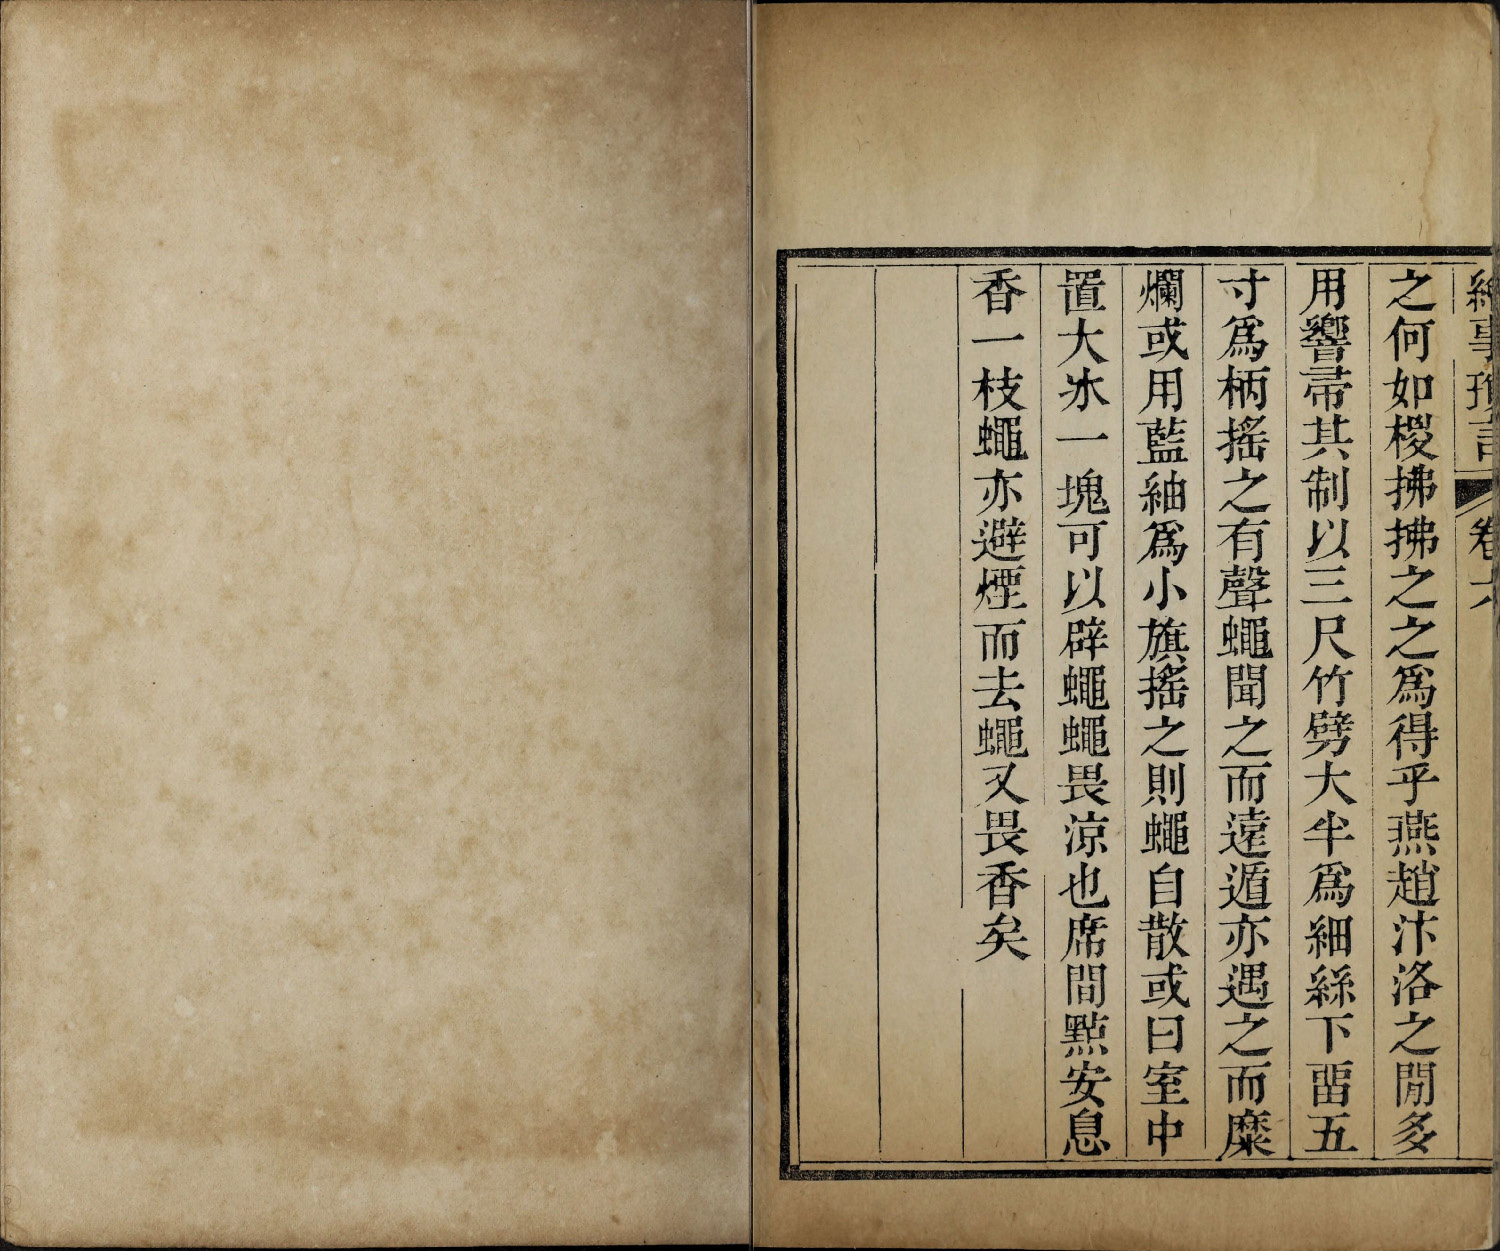 繪事瑣言 卷六
之何如椶拂拂之之爲得乎燕趙汴洛之閒多
用響帚其制以三尺竹劈大半爲細絲下畱五
寸爲柄搖之有聲蠅聞之而遠遁亦遇之而糜
爛或用藍紬爲小旗搖之則蠅自散或曰室中
置大冰一塊可以辟蠅蠅畏涼也席間㸃安息
香一枝蠅亦避煙而去蠅又畏香矣